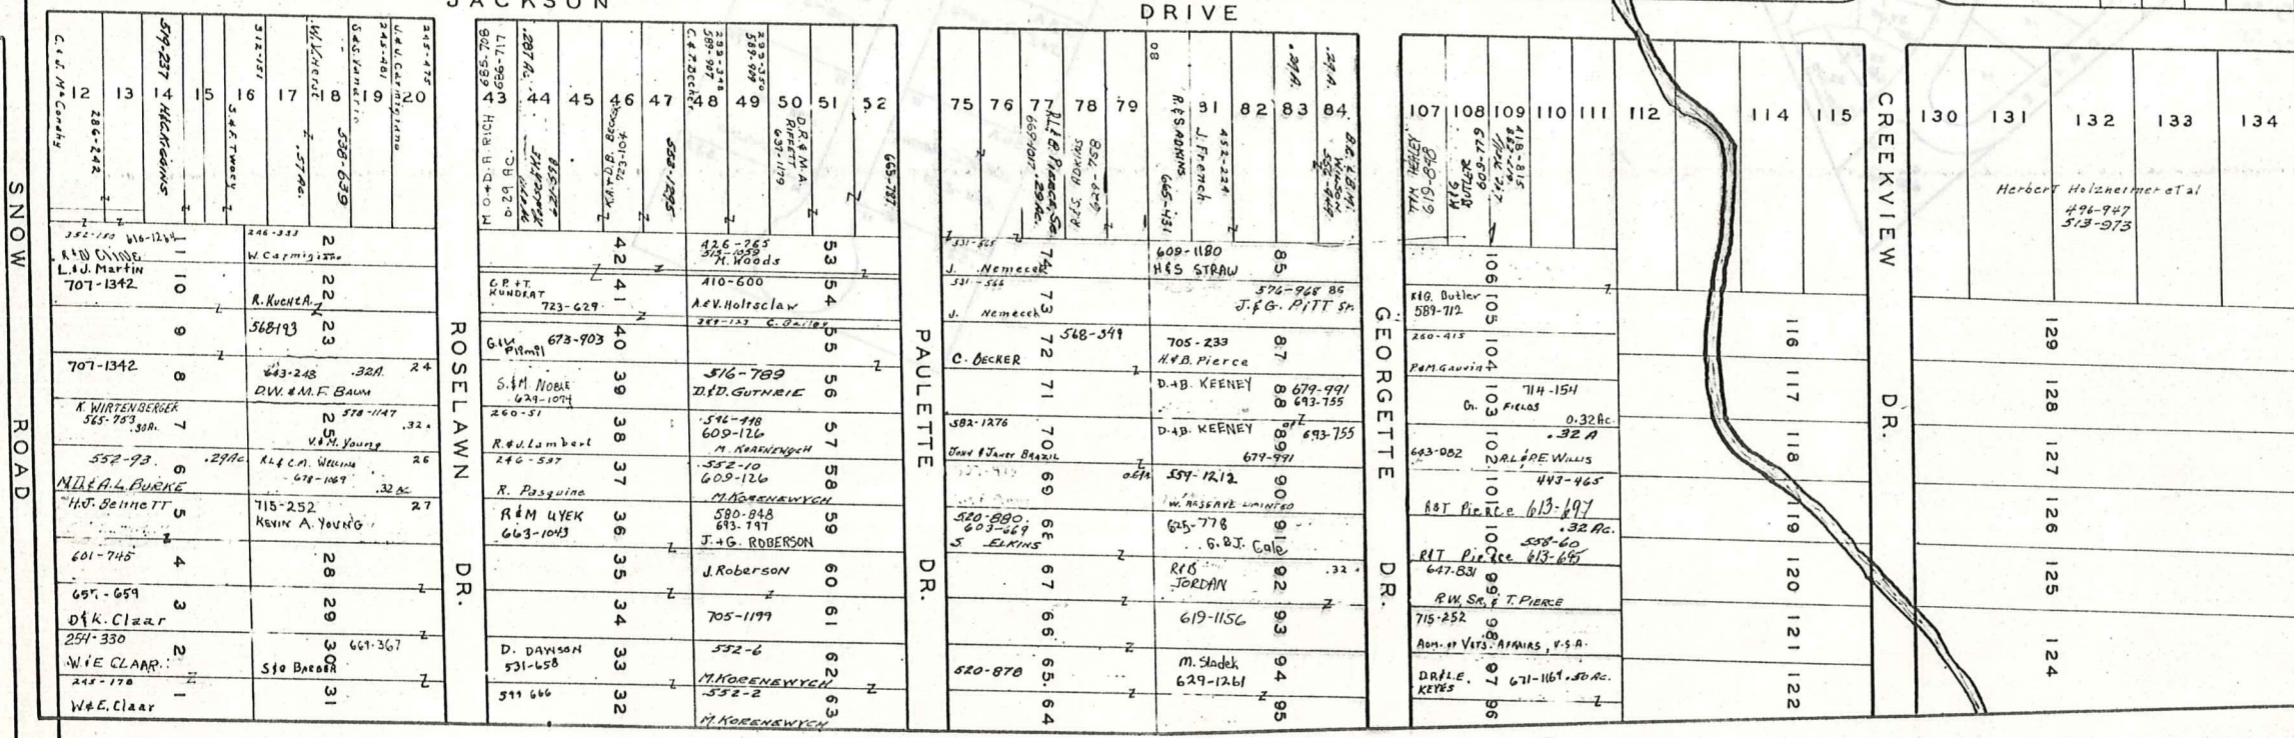 JACKSON
DRIVE
SNOW ROAD
12 13 14 15 16 17 18 19 20
C. & J. McConahy
286-242
519-237
312-151
S. & F. Twoey
W. V. Herst
.57 Ac.
538-639
245-481
J. & J. Carmigiano
245-475
616-1264
R & D Cline
11
L. & J. Martin
707-1342
10
9
707-1342
8
K. WIRTENBERGER
565-753
.30A.
7
552-93
.29Ac
6
M.D. & A.L. BURKE
H.J. Bennett
5
601-745
4
657-659
3
D & K. Claar
254-330
2
W. & E CLAAR
245-178
1
W & E. Claar
246-333
21
W. Carmigiano
22
R. KUCHTA
568-193
23
643-248
.32A.
24
D.W. & M.F. BAUM
578-1147
25
.32
V. & M. Young
RL & C.M. WELLING
26
678-1069
.32 Ac
715-252
27
KEVIN A. YOUNG
28
29
30
669-367
S & O BARBER
31
ROSELAWN DR.
43 44 45 46 47 48 49 50 51 52
717-989
708-589
0.29 AC.
.287 Ac.
558-1295
C. & P. Becker
589-907
589-909
D.R. & M.A.
RIFFETT
637-1179
665-787
42
G.P. & T.
KUNDRAT
723-629
41
G & V
Primil
673-903
40
S. & M. NOBLE
629-1074
39
260-51
38
R. & J. Lambert
246-597
37
R. Pasquine
R & M UYEK
36
663-1043
35
34
D. DAWSON
33
531-658
599 666
32
426-765
53
515-1059
M. Woods
410-600
54
A. & V. Holtsclaw
389-123 C. Bailey
55
516-789
56
D. & D. GUTHRIE
546-448
609-126
57
M. KORENEWYCH
552-10
609-126
58
M. KORENEWYCH
580-848
693-797
59
J. + G. ROBERSON
J. Roberson
60
705-1199
61
552-6
62
M. KORENEWYCH
552-2
63
M. KORENEWYCH
PAULETTE DR.
75 76 77 78 79 80 81 82 83 84
R.L. & B. Pierce, Sr.
669-1017
.29 Ac.
R. & S ADKINS
665-431
J. French
452-224
.29A.
.29A.
B.E. & B.M.
WILSON
531-565
74
J. Nemecek
531-566
73
J. Nemecek
568-549
72
C. BECKER
71
582-1276
70
JOHN & JANET BRAZIL
69
520-880
603-669
68
S. ELKINS
67
66
520-878
65
64
609-1180
85
H & S STRAW
576-968 86
J. & G. PITT Sr.
705-233
87
H. & B. Pierce
D. + B. KEENEY
88
679-991
693-755
D. + B. KEENEY
89
693-755
679-991
559-1212
90
W. RESERVE LIMITED
625-778
91
G. & J. Gale
R & B
JORDAN
92
.32
619-1156
93
M. Sladek
94
629-1261
95
GEORGETTE DR.
107 108 109 110 111 112 114 115
418-815
BUTLER
ETHEL HALL
106
R & G. Butler
589-712
105
260-415
104
P & M. Gauvin
714-154
103
G. FIELDS
0.32 Ac.
.32 A
643-082
102
R.L. & P.E. WILLIS
443-465
101
R & T Pierce 613-697
.32 Ac.
558-60
100
R & T Pierce 613-695
647-831
99
R.W., SR. & T. PIERCE
715-252
98
ADM. OF VETS. AFFAIRS, U.S.A.
D.R. & L.E.
KEYES
97
671-1164 .50 Ac.
96
116
117
118
119
120
121
122
CREEKVIEW DR.
130 131 132 133 134
Herbert Holzheimer et al
496-947
513-973
129
128
127
126
125
124